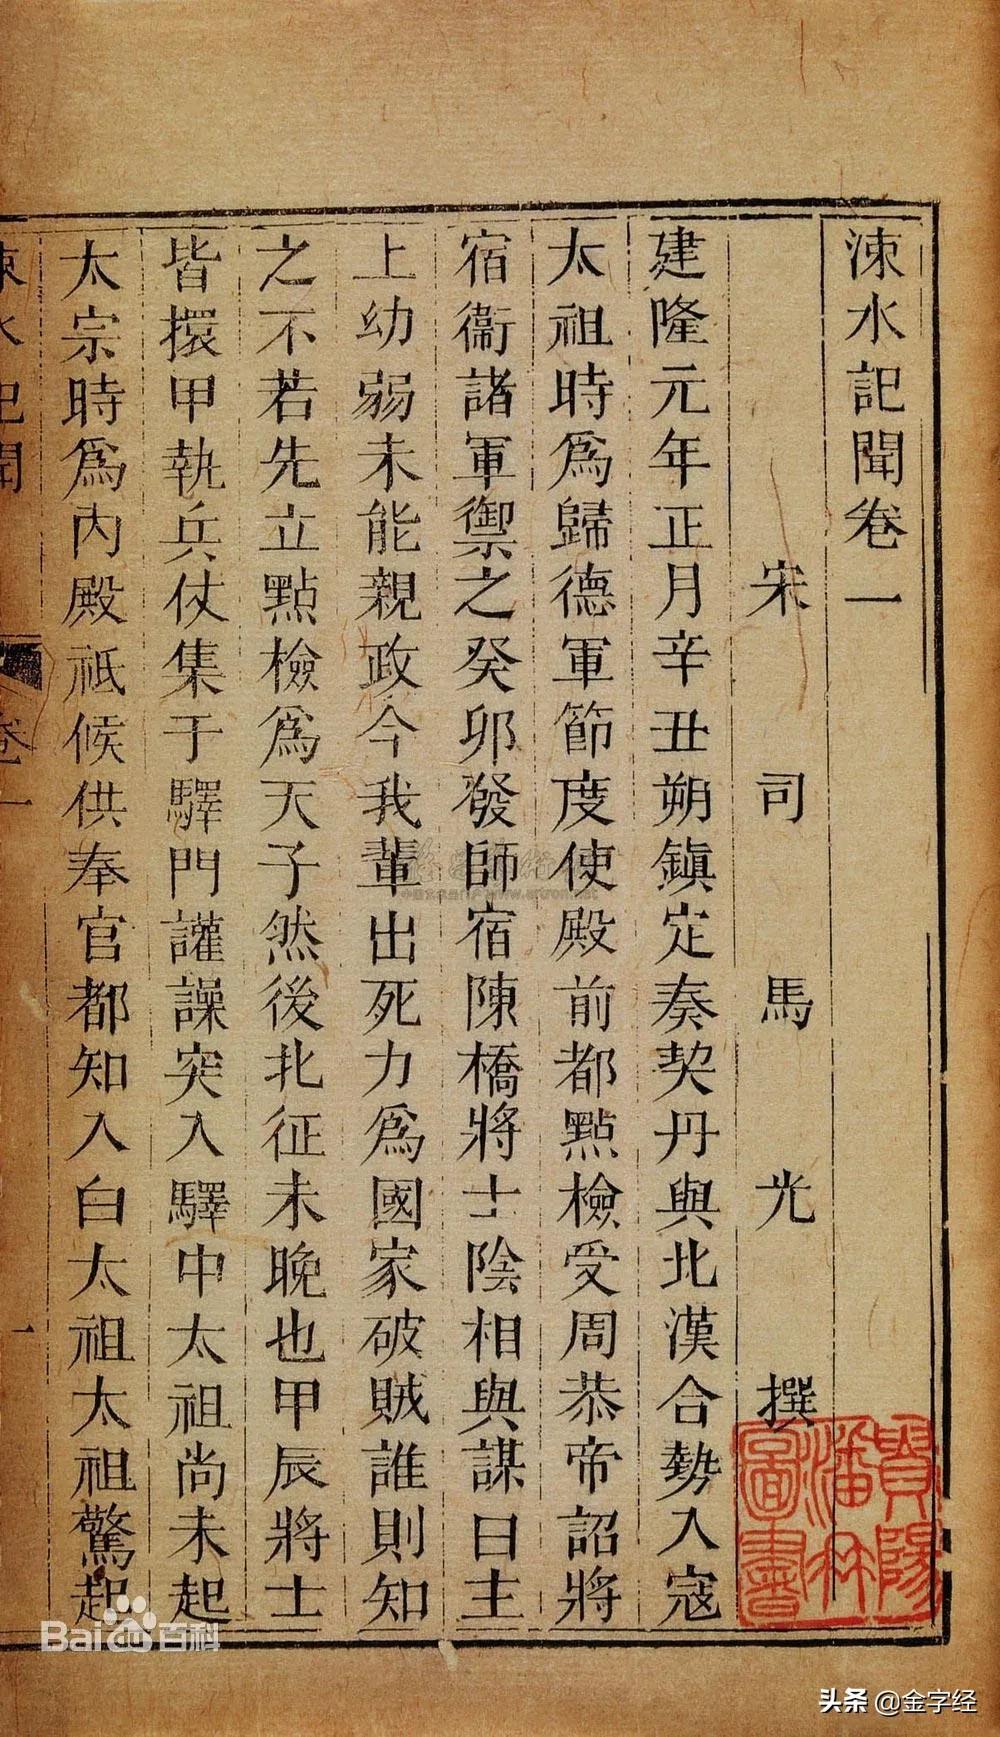 涑水記聞卷一
宋 司 馬 光 撰
建隆元年正月辛丑朔鎮定奏契丹與北漢合勢入寇
太祖時爲歸德軍節度使殿前都點檢受周恭帝詔將
宿衞諸軍禦之癸卯發師宿陳橋將士陰相與謀曰主
上幼弱未能親政今我輩出死力爲國家破賊誰則知
之不若先立點檢爲天子然後北征未晚也甲辰將士
皆擐甲執兵仗集于驛門讙譟突入驛中太祖尚未起
太宗時爲内殿祇候供奉官都知入白太祖太祖驚起
涑水記聞
卷一
一
Baidu百科
头条 @金字经